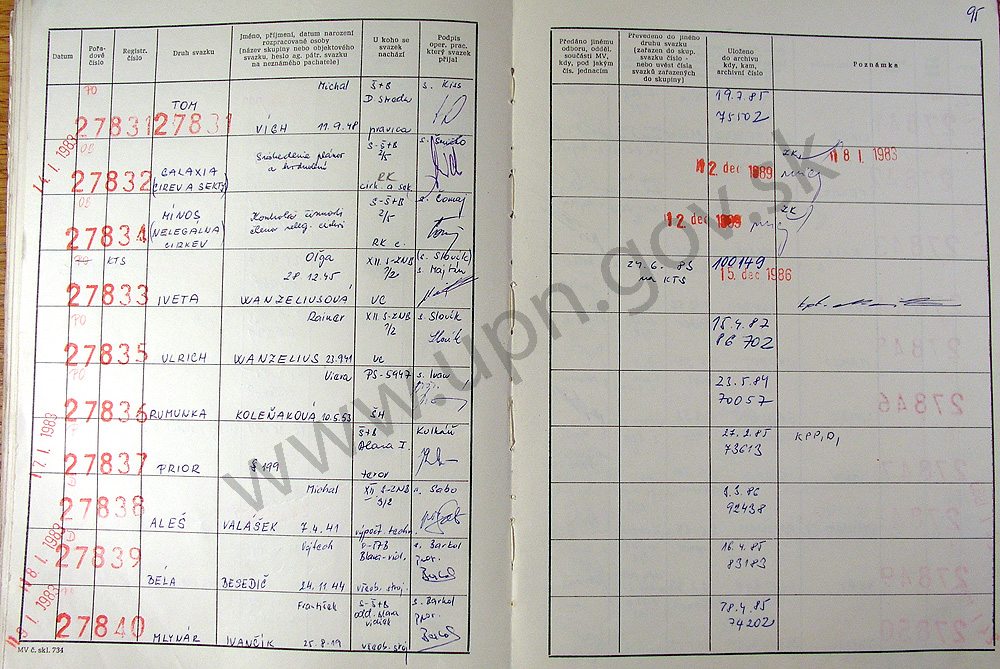 95
Datum
Pořa-
dové
číslo
Registr.
číslo
Druh svazku
Jméno, příjmení, datum narození
rozpracované osoby
(název skupiny nebo objektového
svazku, heslo ag. pátr. svazku
na neznámého pachatele)
U koho se
svazek
nachází
Podpis
oper. prac.
který svazek
přijal
Předáno jinému
odboru, odděl.
součásti MV,
kdy, pod jakým
čís. jednacím
Převedeno do jiného
druhu svazku
(zařazen do skup.
svazku číslo -
nebo uvést čísla
svazků zařazených
do skupiny)
Uloženo
do archivu
kdy, kam,
archivní číslo
Poznámka
14 1. 1983
PO
27831
TOM
27831
Michal
VÍCH 11.9.48
Š+B
D. Streda
pravica
s. Kiss
19.7.85
75102
27832
GALAXIA
(CIREV A SEKTY)
S-Š+B
2/5
RK
cirk. a sek.
12. dec 1989
ZK
18 1. 1983
27834
MÍNOS
(NELEGÁLNA
CIRKEV
S-Š+B
2/5
RK c.
12. dec 1989
ZK
PO KTS
27833
IVETA
Oľga
28 12.45
WANZELIUSOVÁ
XII. S-ZNB
7/2
VC
(s. Slovík)
s. Majtán
24.6.83
na KTS
100149
15. dec 1986
PO
27835
ULRICH
Rainer
WANZELIUS 23.941
XII S-ZNB
7/2
VC
s. Slovík
Slovík
15.4.87
86 702
PO
27836
RUMUNKA
Viera
KOLEŇAKOVÁ 10.5.53
PS-5947
ŠH
s. Ivan
23.5.84
70057
17 1. 1983
27837
PRIOR
Š 199
Š+B
Blava I.
teror
Kulkáň
27.2.85
73613
KPP, D,
27838
ALEŠ
Michal
VALÁŠEK 7.4.41
XII S-ZNB
3/2
výpočt. techn.
s. Sabo
92438
18 1. 1983
27839
BÉLA
Vojtech
BESEDIČ 24.11.44
Blava-vid.
všeob. stroj
s. Barkol
16.4.85
83183
18 1. 1983
27840
MLYNÁR
František
IVANČÍK 25.8.19
S-Š+B
odd. Blava
vidiek
všeob. stroj
s. Barkol
28.4.85
74202
MV č. skl. 734
www.upn.gov.sk